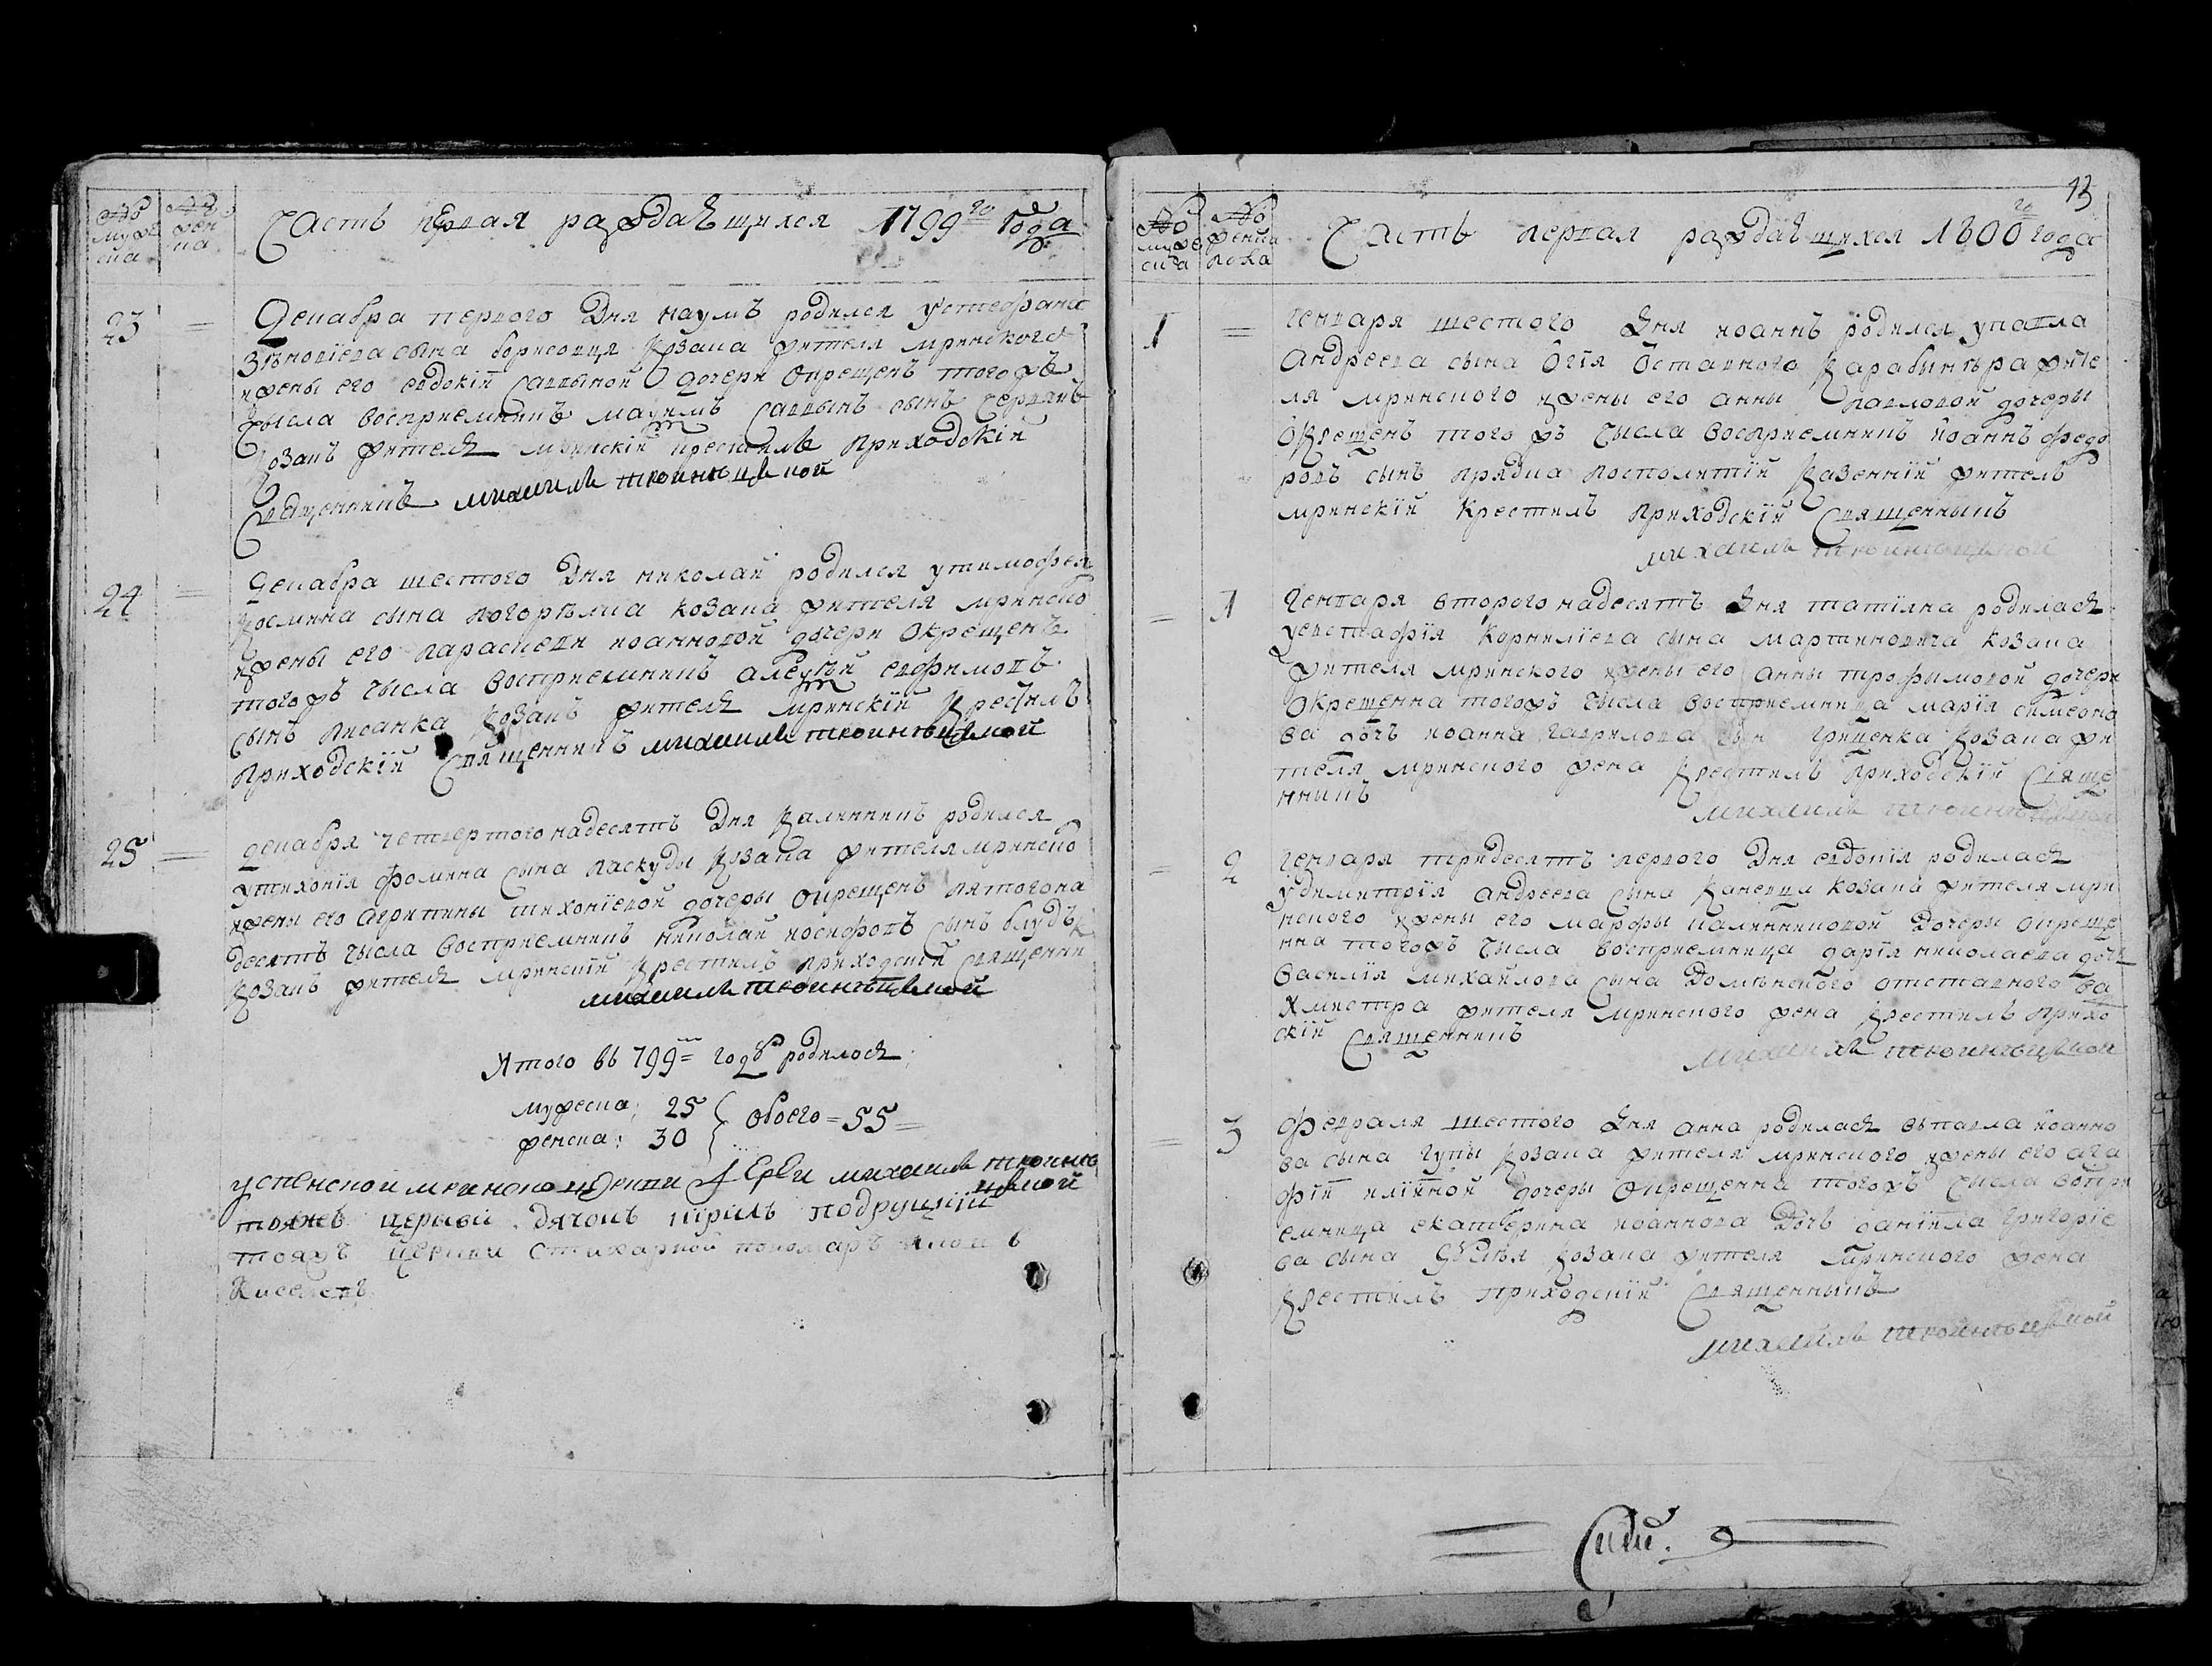 Часть первая раждающихся 1799го Года
№ мужеска
№ женска
23 =
Декабра первого Дня наумъ родился устефана
Зѣновїева сына борисовця козака жителя мринского
ижены его евдокїи саввыной дочери окрещенъ тогожъ
числа восприемникъ маѯимъ саввынъ сынъ
козакъ жителъ мринскїй крестилъ приходскїй
Священникъ михаилъ
24 =
Декабра шестого Дня николай родился утимофея
козмина сына погорѣлка козака жителя мринско
ижены его параскеви иоанновой дочери окрещенъ
тогожъ числа восприемникъ алеѯѣй евфимовъ
сынъ писанка козакъ жителъ мринскїй крестилъ
приходскїй Священникъ михаилъ
25 =
декабря четвертогонадесятъ Дня калинникъ родился
утихонїя фомина сына паскуды козака жителя мринско
ижены его агрипины тихонїевой дочеры окрещенъ пятогона
десятъ числа восприемникъ николай иосифовъ сынъ
козакъ жителъ мринскїй крестилъ приходскїй Священни
михаилъ
Итого въ 799м годѣ родилось
мужеска: 25
женска: 30
обоего = 55 =
успенской мринско церкви Іерей михаилъ
тояжъ церкви дячокъ кїрилъ подруцкїй
тояжъ церкви стихарной пономаръ
13
Часть первая раждающихся 1800го года
№ мужеска
№ женска пола
1 =
генваря шестого Дня иоаннъ родился упавла
андреева сына Огїя отставного карабинѣра жите
ля мринского ижены его анны павловой дочеры
окрещенъ тогожъ числа восприемникъ иоаннъ федо
ровъ сынъ прядка посполитїй казеннїй житель
мринскїй крестилъ приходскїй Священныкъ
михаилъ
= 1
генваря второгонадесятъ Дня татїана родилась
уевстафїя корнилїева сына мартиновича козака
жителя мринского ижены его анны трофимовой дочери
окрещенна тогожъ числа восприемница марїя симеоно
ва дочъ иоанна гаврилова сына гриценка козака жи
теля мринского жена крестилъ приходскїй Свяще
нныкъ
михаилъ
= 2
генваря тридесятъ первого Дня евдокїя родилась
удимитрїя андреева сына каневця козака жителя мри
нского ижены его марфы калинниковой дочеры окреще
нна тогожъ числа восприемница дарїя николаева дочъ
василїя михайлова сына отставного ва
хмистра жителя мринского жена крестилъ прихо
скїй Священникъ
михаилъ
= 3
февраля шестого Дня анна родилась упавла иоанно
ва сына гупы козака жителя мринского ижены его ага
фїи илїиной дочеры окрещенна тогожъ числа воспри
емница екатерина иоаннова дочъ данїила григорїе
ва сына козака жителя мринского жена
крестилъ приходскїй Священныкъ
михаилъ